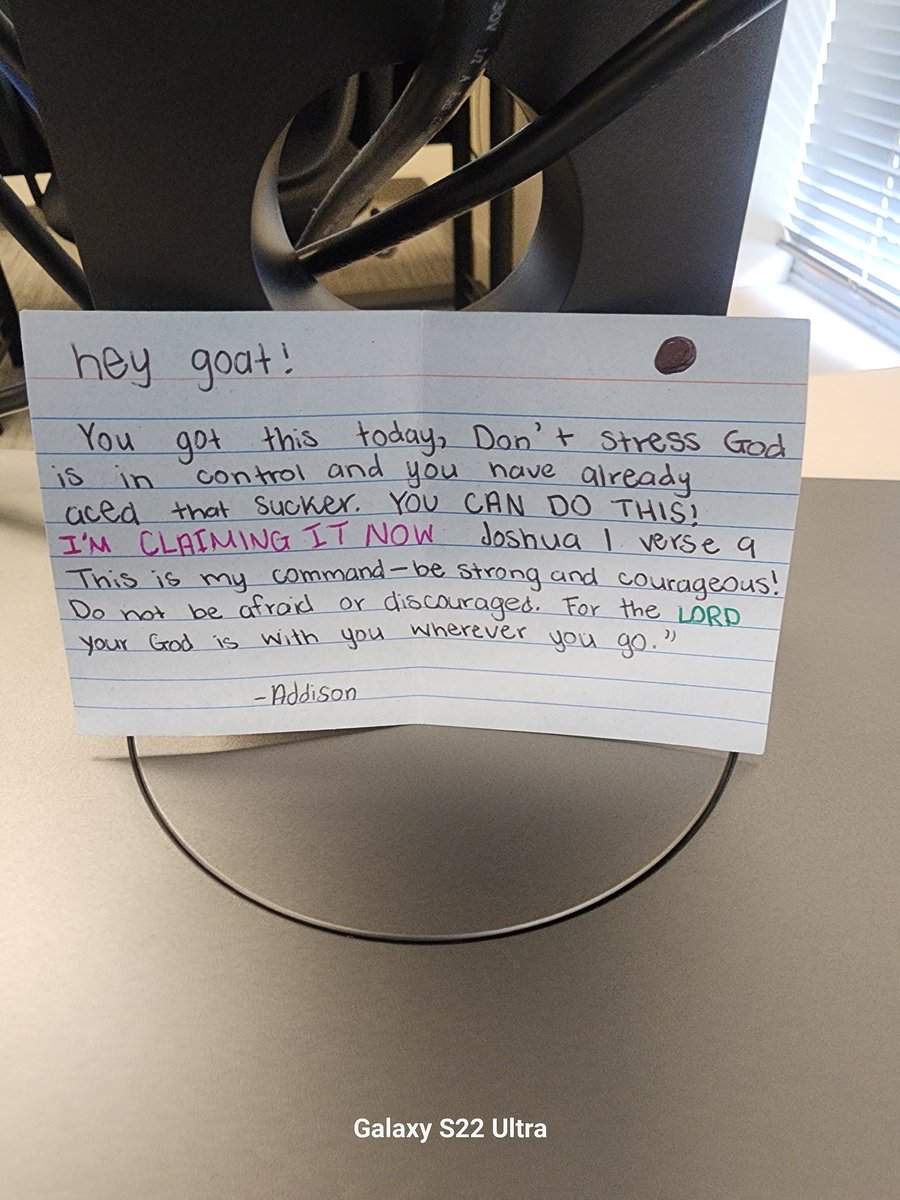 hey goat!
You got this today, Don't stress God
is in control and you have already
aced that sucker. YOU CAN DO THIS!
I'M CLAIMING IT NOW Joshua 1 verse 9
This is my command-be strong and courageous!
Do not be afraid or discouraged. For the LORD
your God is with you wherever you go."
-Addison
Galaxy S22 Ultra